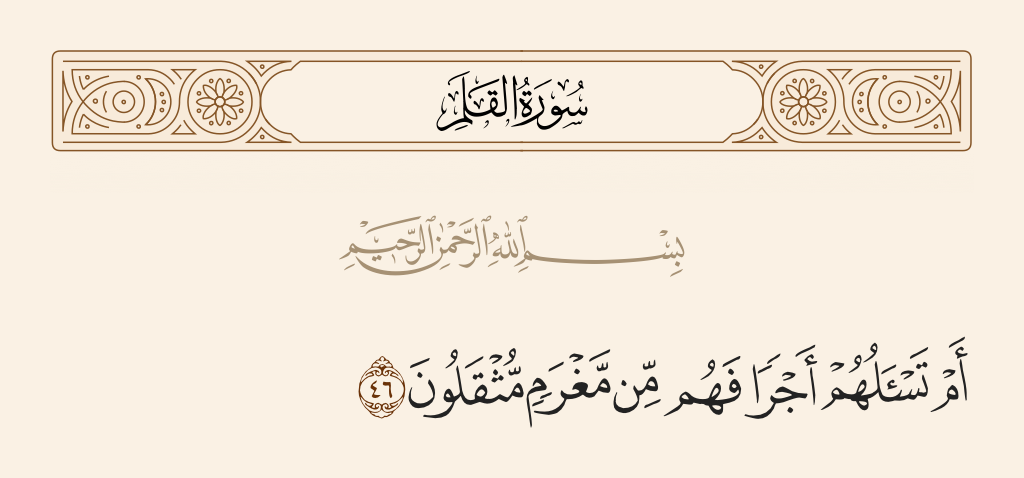 سُورَةُ القَلَمِ
بِسْمِ ٱللَّهِ ٱلرَّحْمَٰنِ ٱلرَّحِيمِ
أَمْ تَسْـَٔلُهُمْ أَجْرًا فَهُم مِّن مَّغْرَمٍ مُّثْقَلُونَ ٤٦